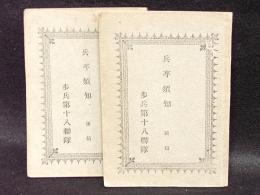 兵卒須知 後編
歩兵第十八聯隊
兵卒須知 前編
歩兵第十八聯隊